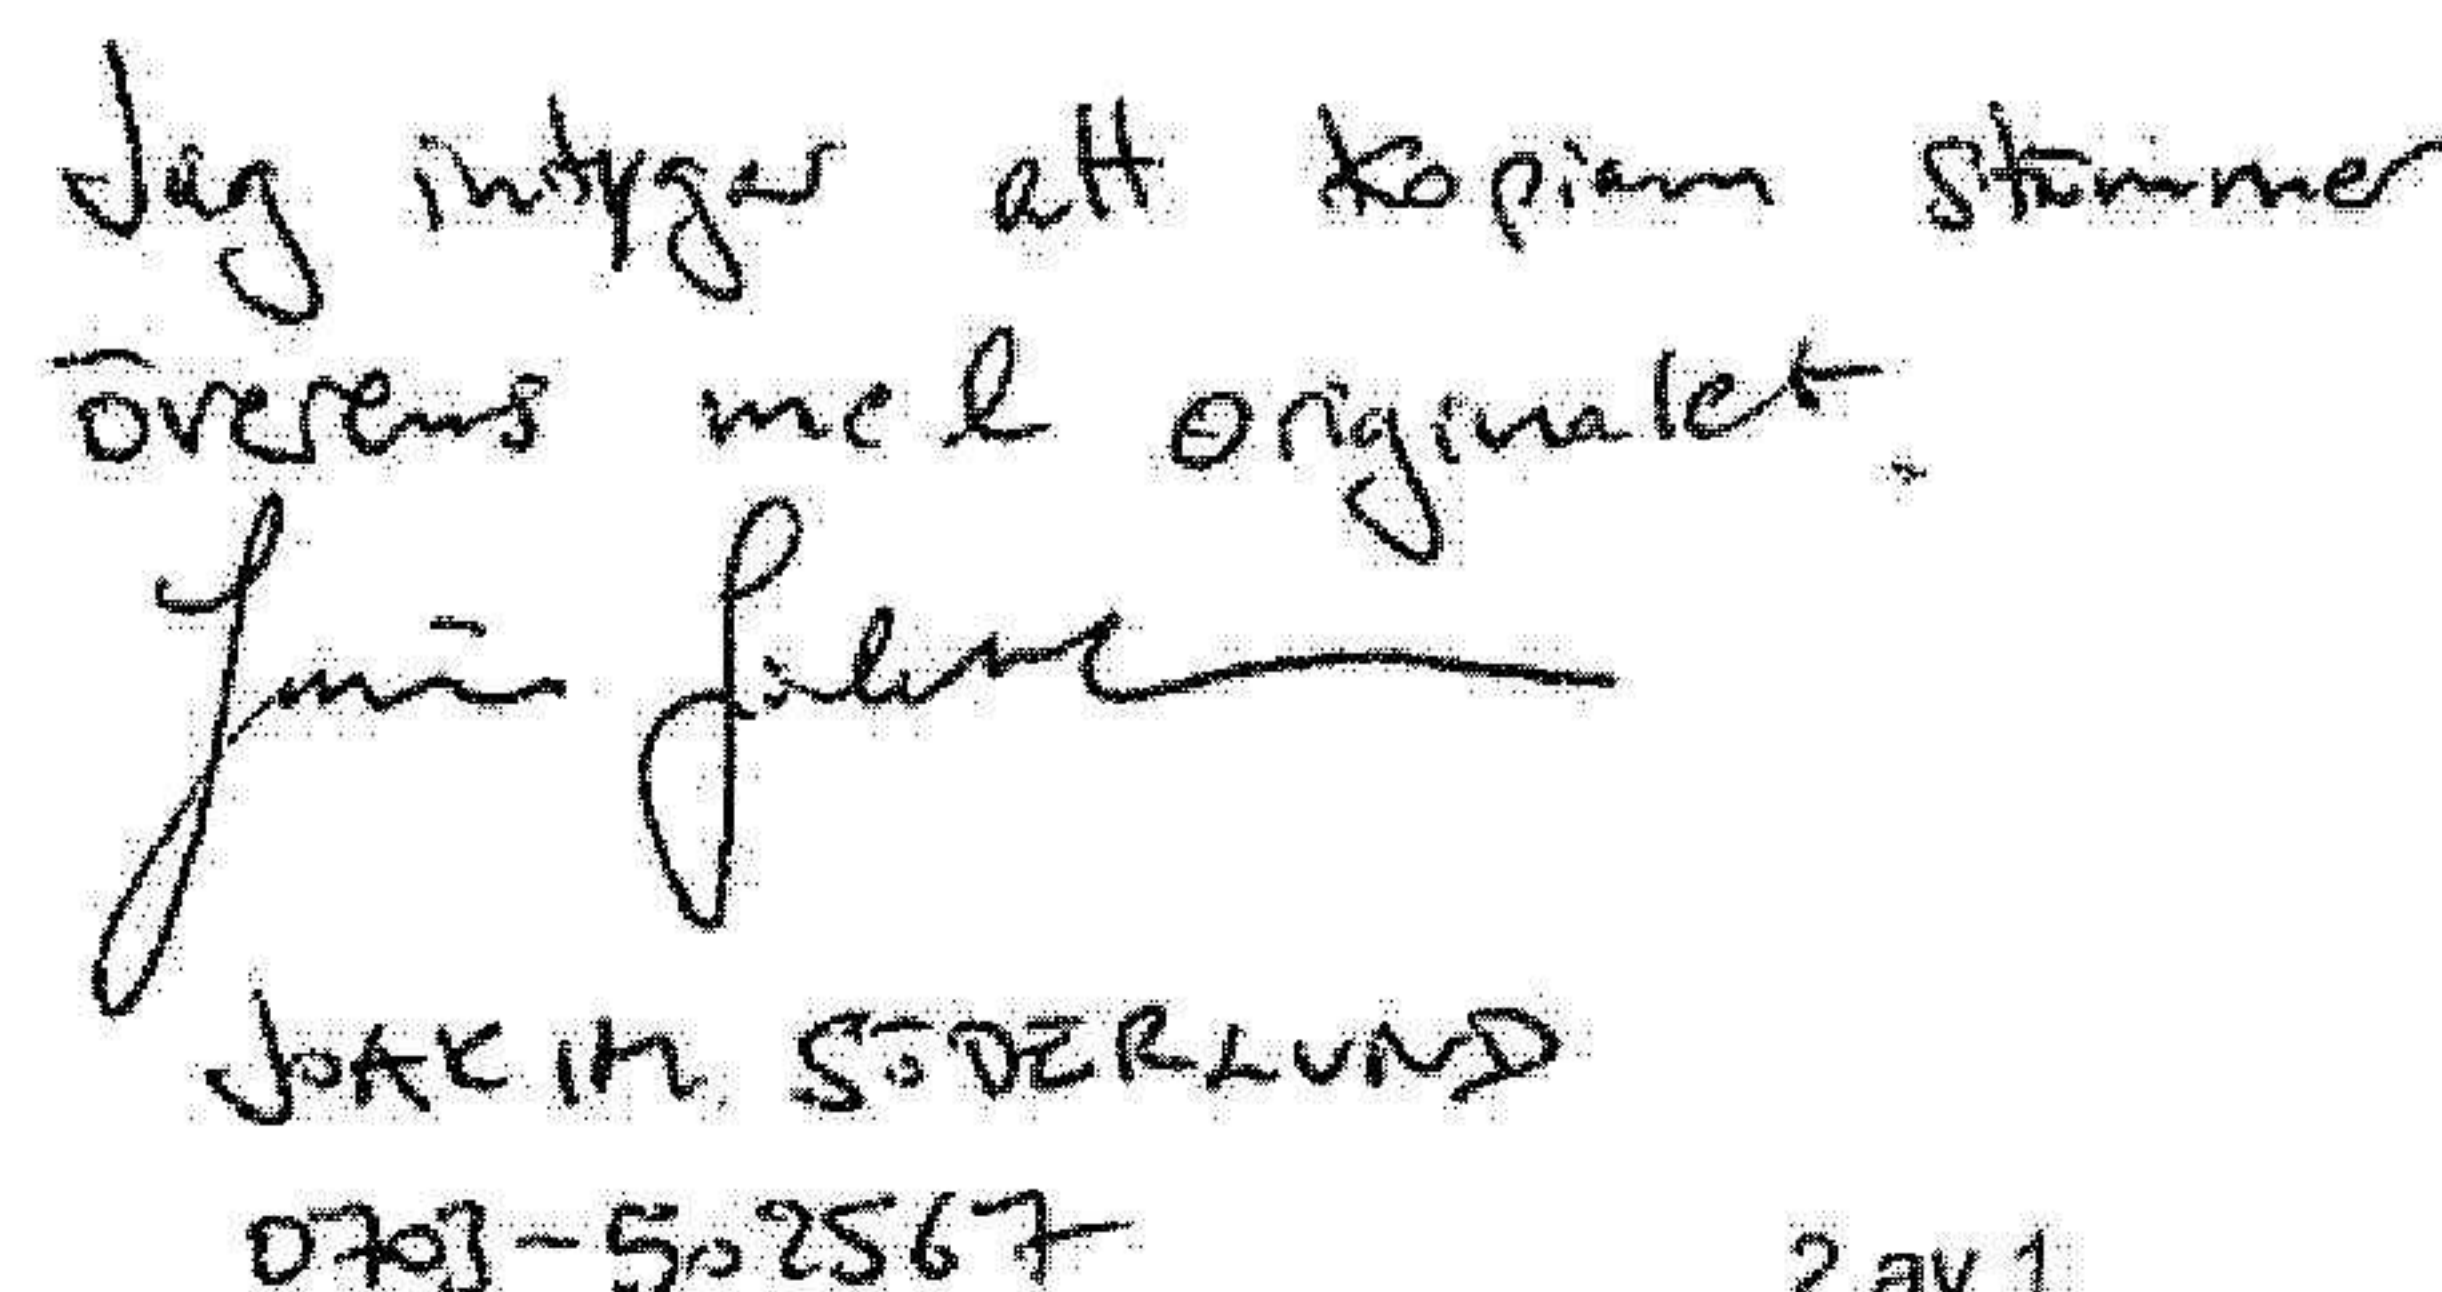 Jag intygar att kopian stämmer
överens med originalet.
JOAKIM SÖDERLUND
0703-502567
2 av 1